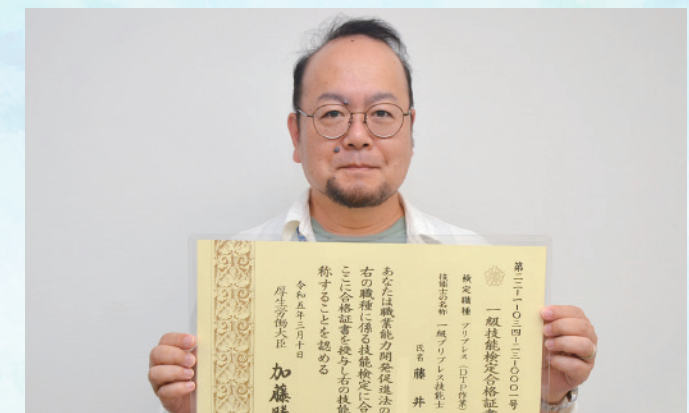 第二二-一-〇三四-二三-〇〇〇一号
一級技能検定合格証書
検定職種 プリプレス(DTP作業)
技能士の名称 一級プリプレス技能士
氏名 藤井
あなたは職業能力開発促進法の
右の職種に係る技能検定に合
ここに合格証書を授与し右の技能
称することを認める
令和五年三月十日
厚生労働大臣 加藤勝